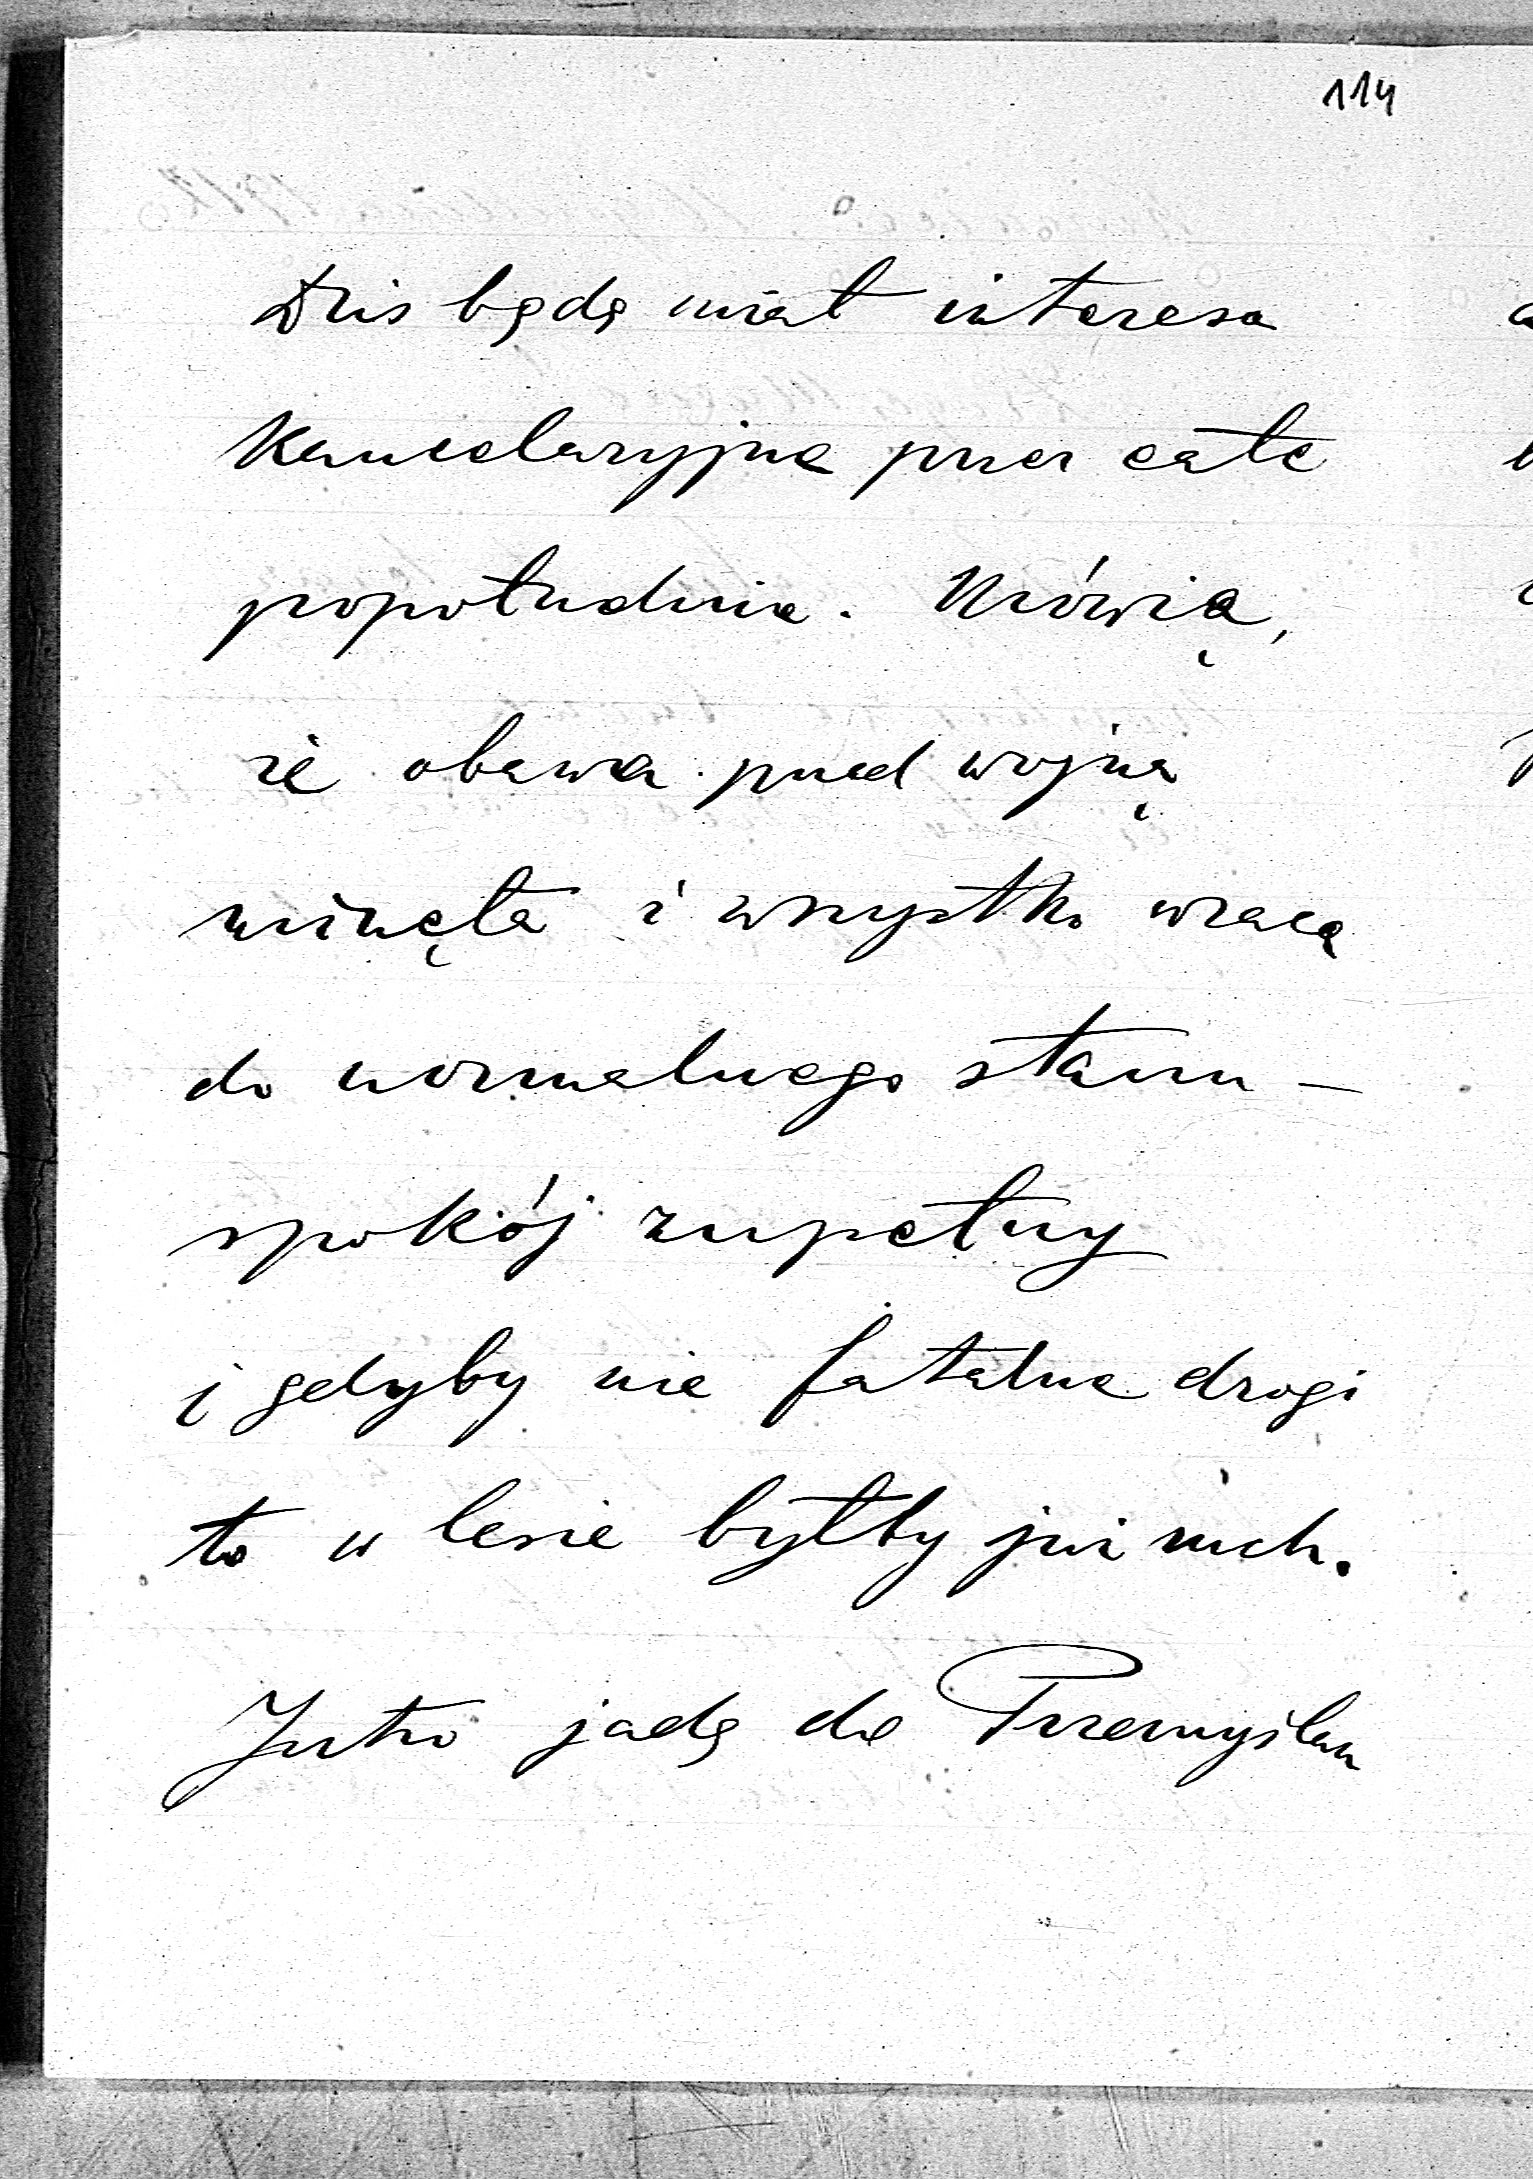 114
Dziś będę miał interesa
kancelaryjne przez całe
popołudnie. Mówią,
że obawa przed wojną
minęła i wszystko wraca
do normalnego stanu –
spokój zupełny
i gdyby nie fatalne drogi
to w lesie byłby już ruch.
Jutro jadę do Przemyślan